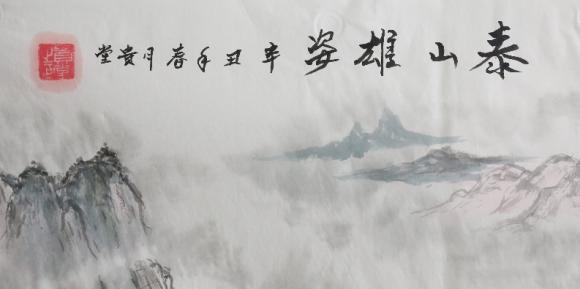 泰山雄姿辛丑年春月贵堂